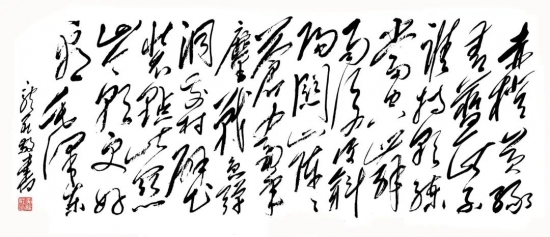 赤橙黄绿
青蓝紫
谁持彩练
当空舞
雨后复斜
阳关山阵々
苍当年
鏖战急弹
洞前村壁
装点此关
山今朝更好
看毛泽东